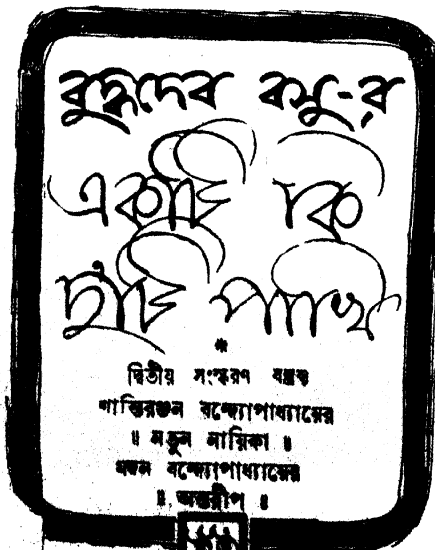 বুদ্ধদেব বসু-র
একটি কি
দুটি পাখি
*
দ্বিতীয় সংস্করণ যন্ত্রস্থ
শান্তিরঞ্জন বন্দ্যোপাধ্যায়ের
॥ নতুন নায়িকা ॥
বন্দ্যোপাধ্যায়ের
॥ অন্তরীপ ॥